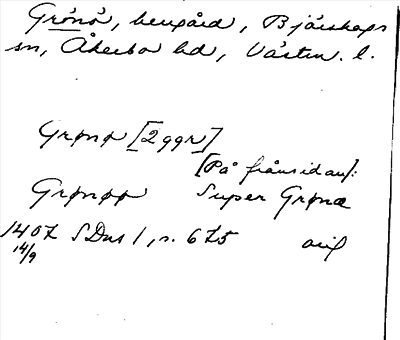 Grönö, bergård, Björskogs
sn, Åkerbo hd, Västm. l.
Grønø [2 ggr]
[På frånsidan]:
Grønøø Super Grønæ
1407 SDns 1, s. 675 orig
14/9